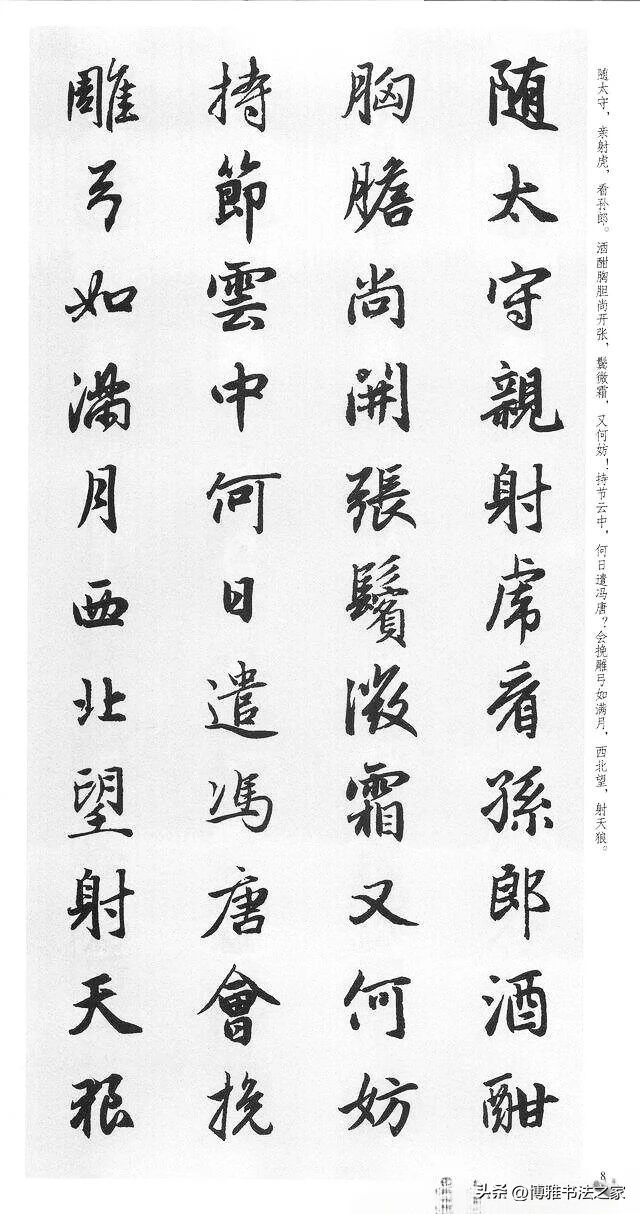 随太守親射虎看孫郎酒酣
胸膽尚開張鬢微霜又何妨
持節雲中何日遣馮唐會挽
雕弓如滿月西北望射天狼
随太守，亲射虎，看孙郎。酒酣胸胆尚开张，鬓微霜，又何妨！持节云中，何日遣冯唐？会挽雕弓如满月，西北望，射天狼。
8
头条@博雅书法之家